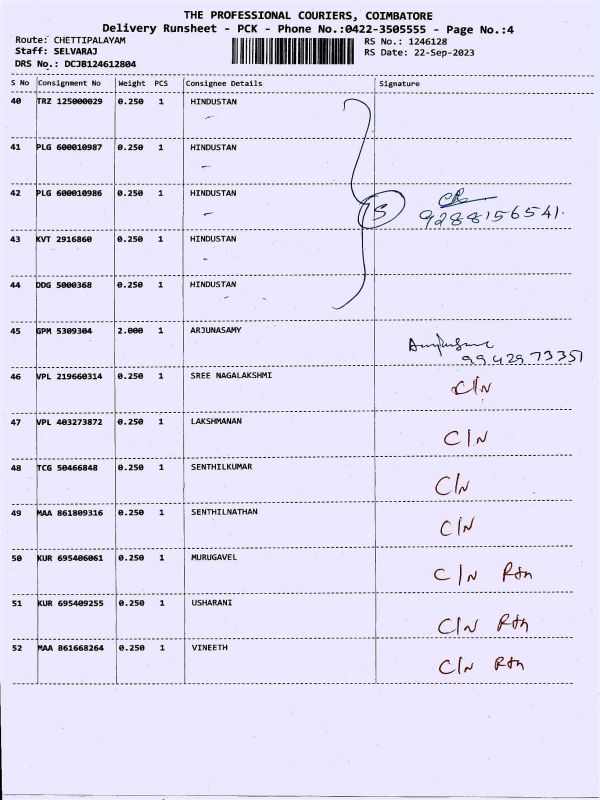 THE PROFESSIONAL COURIERS, COIMBATORE
Delivery Runsheet - PCK - Phone No.:0422-3505555 - Page No.:4
Route: CHETTIPALAYAM RS No.: 1246128
Staff: SELVARAJ RS Date: 22-Sep-2023
DRS No.: DCJB124612804
S No Consignment No Weight PCS Consignee Details Signature
40 TRZ 125000029 0.250 1 HINDUSTAN
41 PLG 600010987 0.250 1 HINDUSTAN
42 PLG 600010986 0.250 1 HINDUSTAN
5 9288156541.
43 KVT 2916860 0.250 1 HINDUSTAN
44 DDG 5000368 0.250 1 HINDUSTAN
45 GPM 5309304 2.000 1 ARJUNASAMY
9942973351
46 VPL 219660314 0.250 1 SREE NAGALAKSHMI C/N
47 VPL 403273872 0.250 1 LAKSHMANAN C/N
48 TCG 50466848 0.250 1 SENTHILKUMAR C/N
49 MAA 861809316 0.250 1 SENTHILNATHAN C/N
50 KUR 695406061 0.250 1 MURUGAVEL C/N Rtn
51 KUR 695409255 0.250 1 USHARANI C/N Rtn
52 MAA 861668264 0.250 1 VINEETH C/N Rtn